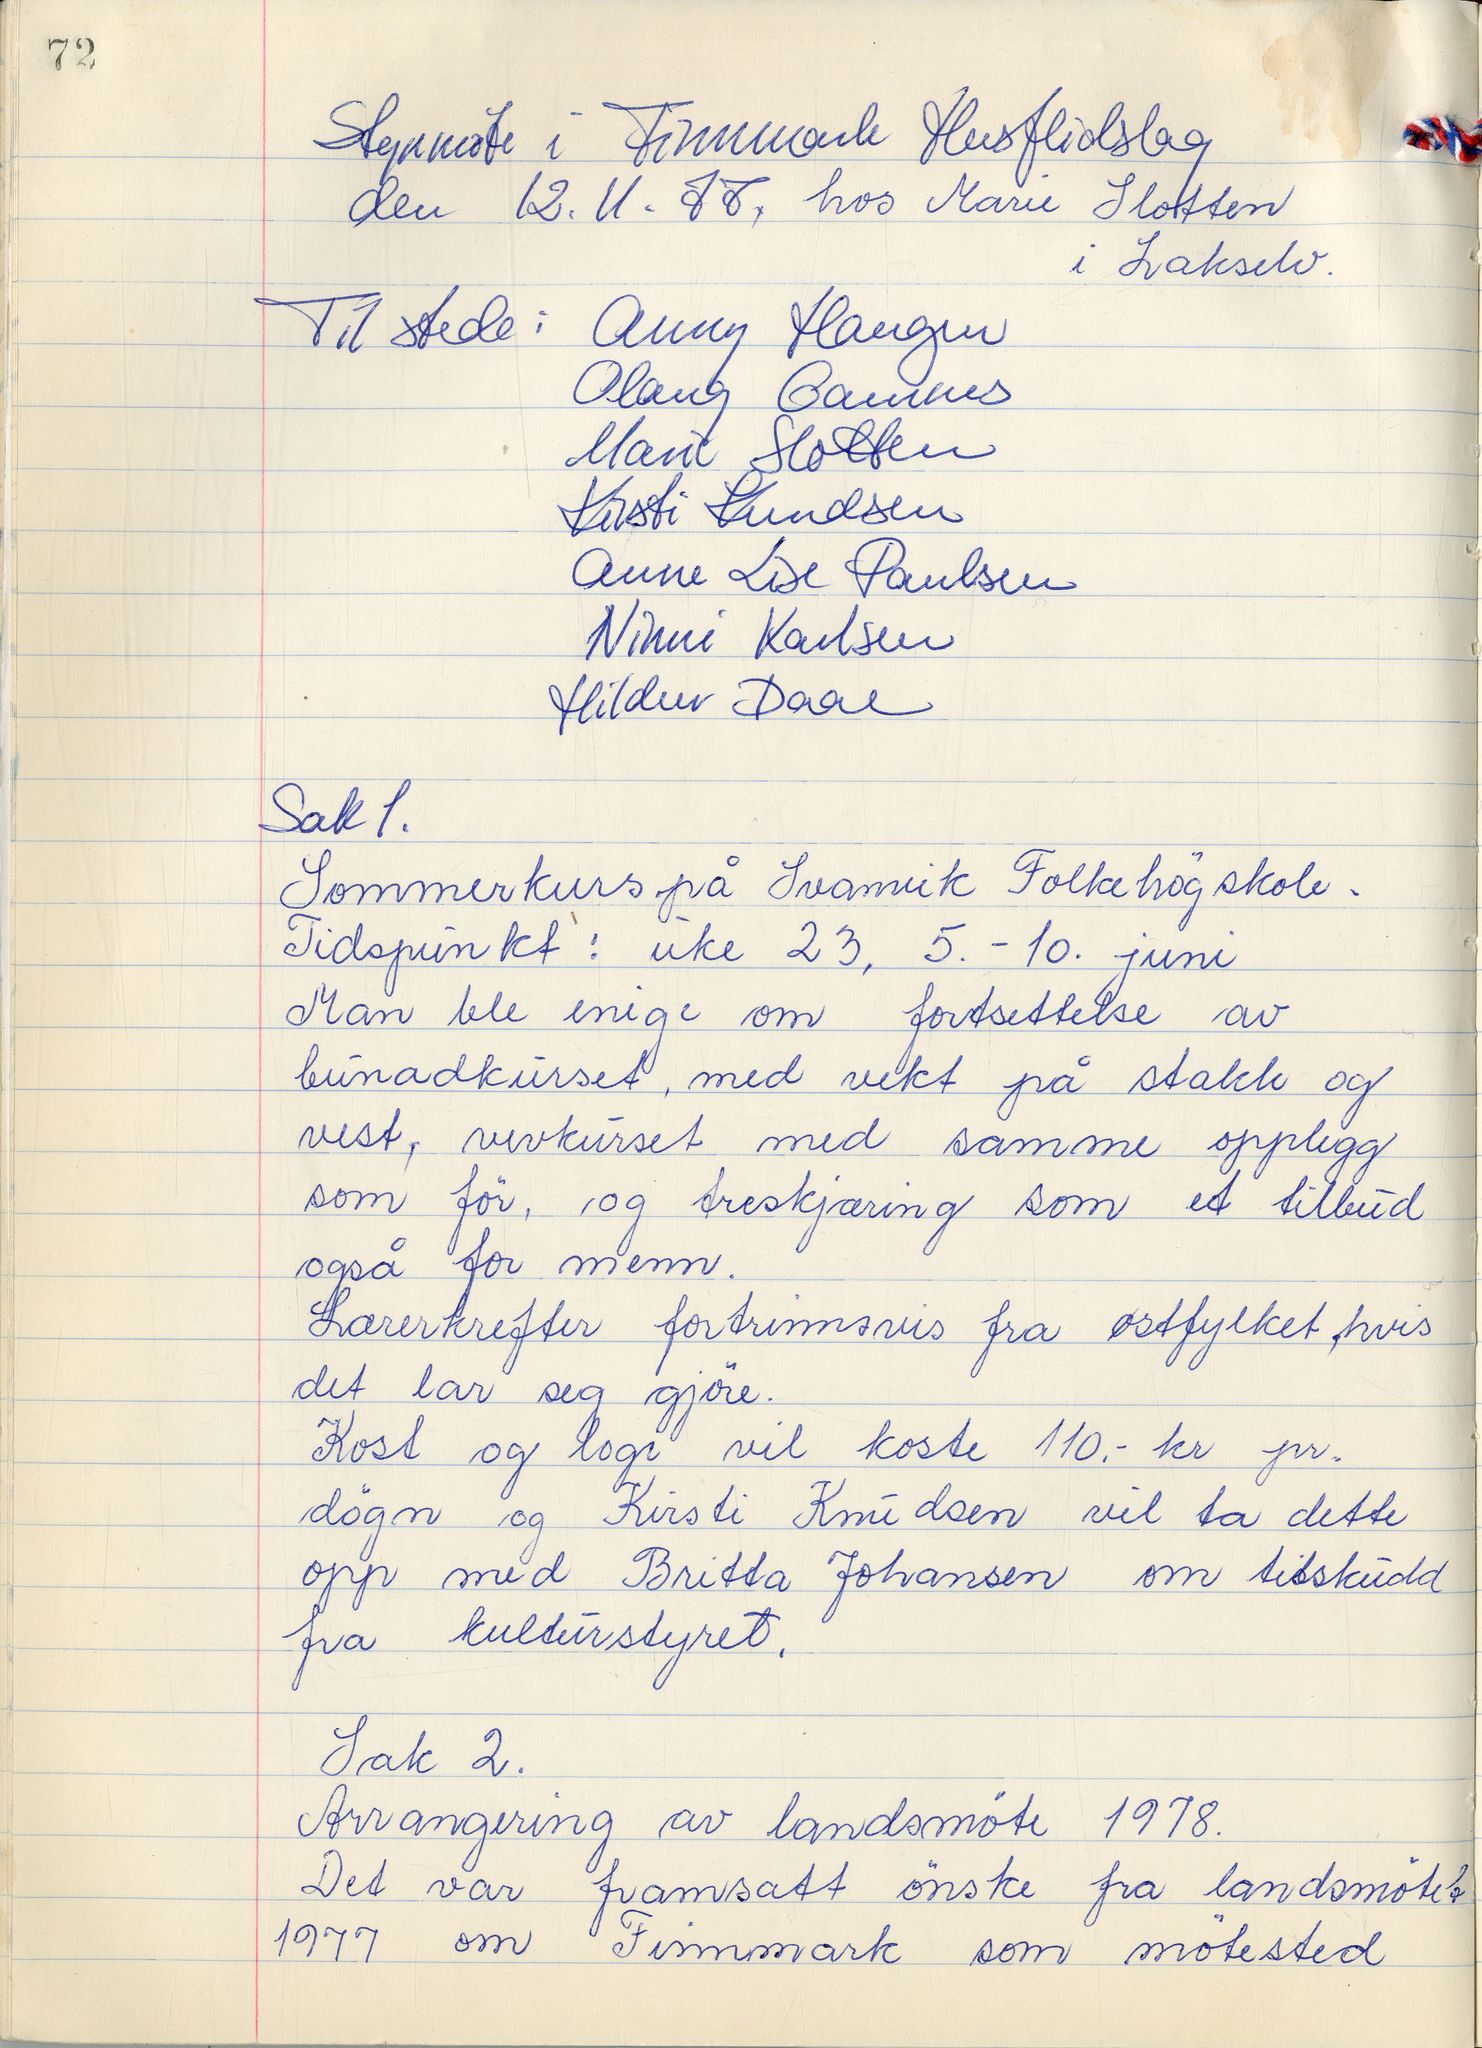 72
Styremöte i Finnmark Husflidslag
den 12.11.77, hos Marie Slotten
i Lakselv.
Til stede: Anny Haugen
Olaug Gamnes
Marie Slotten
Kirsti Knudsen
Anne Lise Paulsen
Ninni Karlsen
Hildur Daae
Sak 1.
Sommerkurs på Svanvik Folkehögskole.
Tidspunkt: uke 23, 5.-10. juni
Man ble enige om fortsettelse av
bunadkurset, med vekt på stakk og
vest, vevkurset med samme opplegg
som för, og treskjæring som et tilbud
også for menn.
Lærerkrefter fortrinnsvis fra østfylket, hvis
det lar seg gjöre.
Kost og logi vil koste 110.- kr pr.
dögn og Kirsti Knudsen vil ta dette
opp med Britta Johansen om tilskudd
fra kulturstyret.
Sak 2.
Arrangering av landsmöte 1978.
Det var framsatt önske fra landsmötet
1977 om Finnmark som mötested